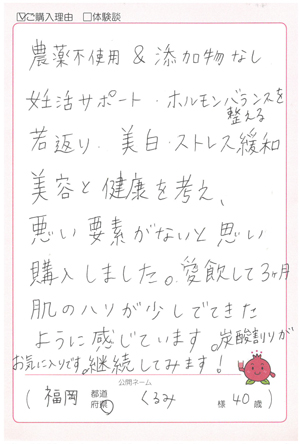 ☑ご購入理由 □体験談
農薬不使用 & 添加物なし
妊活サポート・ホルモンバランスを
整える
若返り・美白・ストレス緩和
美容と健康を考え、
悪い要素がないと思い
購入しました。愛飲して3ヶ月
肌のハリが少しでてきた
ように感じています。炭酸割りが
お気に入りです。継続してみます!
公開ネーム
(福岡 都道府県 くるみ 様 40歳)